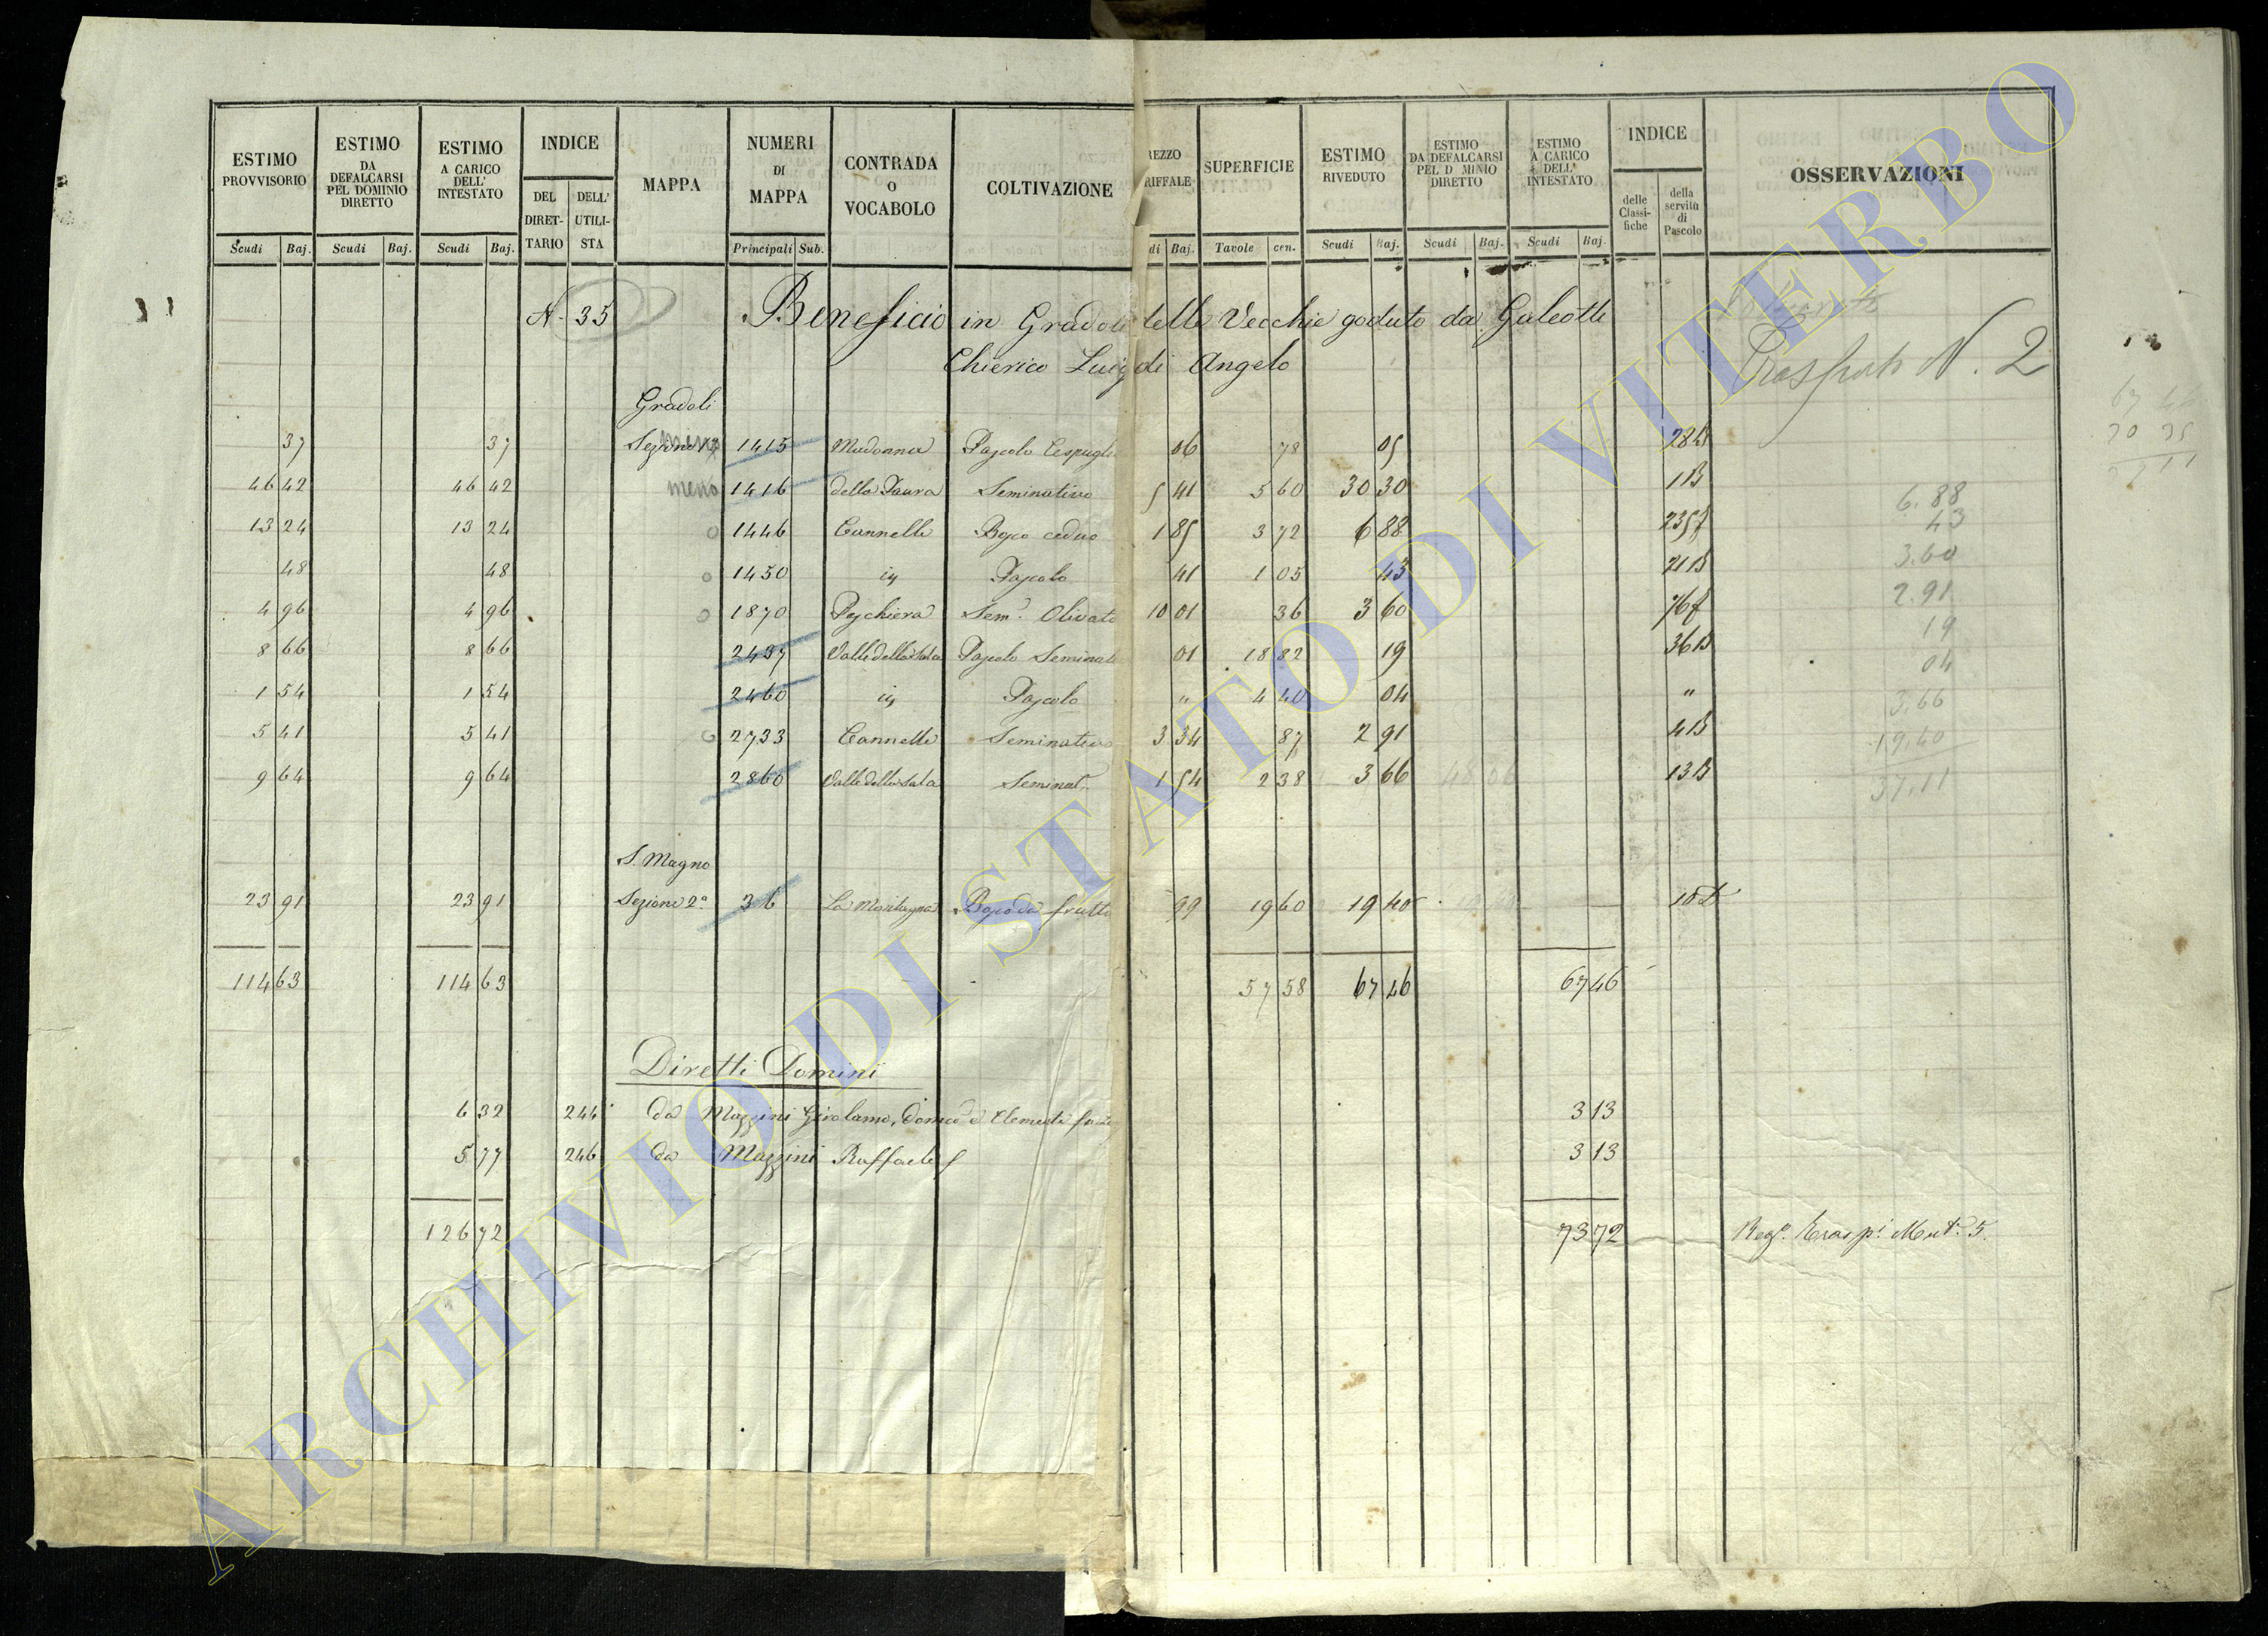 ESTIMO PROVVISORIO | ESTIMO DA DEFALCARSI PEL DOMINIO DIRETTO | ESTIMO A CARICO DELL' INTESTATO | INDICE | MAPPA | NUMERI DI MAPPA | CONTRADA O VOCABOLO | COLTIVAZIONE | REZZO RIFFALE | SUPERFICIE | ESTIMO RIVEDUTO | ESTIMO DA DEFALCARSI PEL D MINIO DIRETTO | ESTIMO A CARICO DELL' INTESTATO | INDICE | OSSERVAZIONI
DEL DIRET-TARIO | DELL' UTILI-STA | delle Classi-fiche | della servitù di Pascolo
Scudi | Baj. | Scudi | Baj. | Scudi | Baj. | Principali | Sub. | di | Baj. | Tavole | cen. | Scudi | Baj. | Scudi | Baj. | Scudi | Baj.
N. 35 Beneficio in Gradoli delle Vecchie goduto da Galeotti
Chierico Luigi di Angelo
N. 2
Gradoli
37 | 37 | Sezione | 1415 | Madonna | Pascolo Cespugl | 06 | 78 | 05 | 28B
46 42 | 46 42 | meno | 1416 | della Paura | Seminativo | 5 41 | 5 60 | 30 30 | 1B
13 24 | 13 24 | 1446 | Cannelle | Bosco ceduo | 1 85 | 3 72 | 6 88 | 6.88
48 | 48 | 1450 | is | Pascolo | 41 | 1 05 | 43 | 21B | 43
4 96 | 4 96 | 1870 | Peschiera | Sem. Olivato | 10 01 | 36 | 3 60 | 3.60
8 66 | 8 66 | 2437 | Valle della Sala | Pascolo Seminat | 01 | 18 82 | 19 | 36B | 2.91
1 54 | 1 54 | 2460 | is | Pascolo | " | 4 40 | 04 | " | 19
5 41 | 5 41 | 2733 | Cannelle | Seminativo | 3 34 | 87 | 2 91 | 4B | 04
9 64 | 9 64 | 2860 | Valle della Sala | Seminat. | 1 54 | 2 38 | 3 66 | 13B | 3.66
19.40
37.11
S. Magno
23 91 | 23 91 | Sezione 2a | 36 | La Montagna | Bosco da frutto | 99 | 19 60 | 19 40 | 10
114 63 | 114 63 | 57 58 | 67 46 | 67 46
Diretti Domini
6 32 | 244 | da Mazzini Girolamo, Domco e Clemente | 3 13
5 77 | 246 | da Mazzini Raffaele | 3 13
126 72 | 73 72 | Reg. Trasp. Mut. 5.
ARCHIVIO DI STATO DI VITERBO